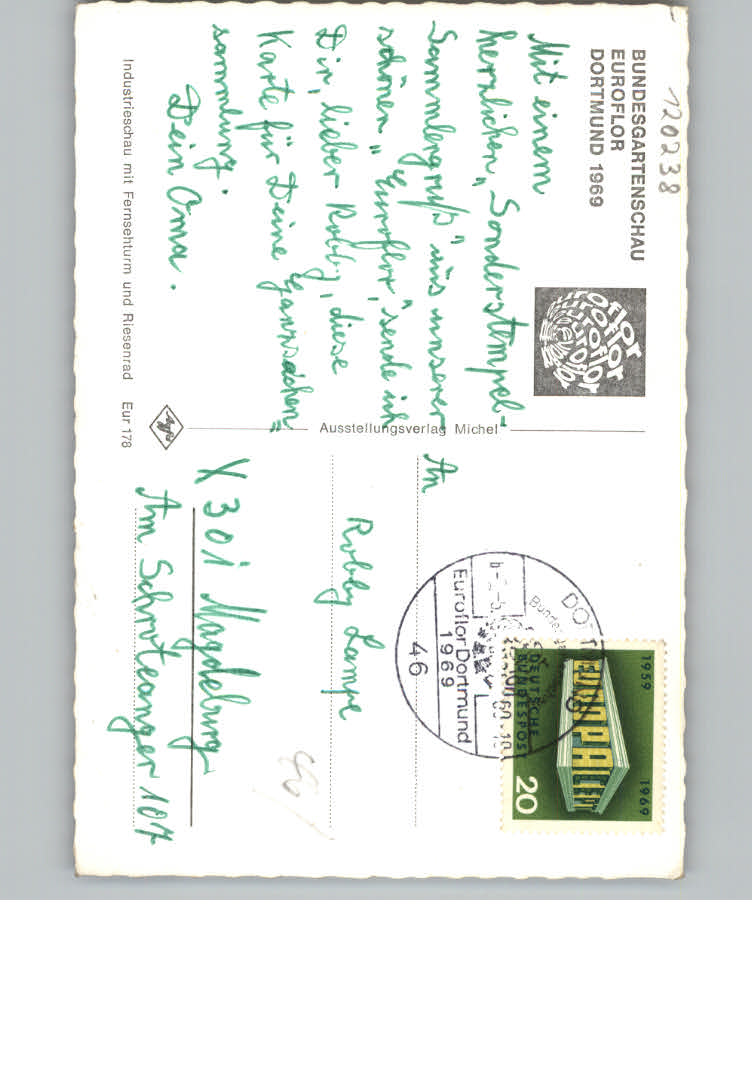 120238
BUNDESGARTENSCHAU
EUROFLOR
DORTMUND 1969
Mit einem
herzlichen „Sonderstempel-
Sammlergruß" aus unserer
schönen „Euroflor", sende ich
Dir, lieber Robby, diese
Karte für Deine Ganzsachen=
sammlung.
Dein Oma.
Industrieschau mit Fernsehturm und Riesenrad Eur 178
Agfa
Ausstellungsverlag Michel
An
Robby Lampe
X 301 Magdeburg
Am Schroteanger 107
Euroflor Dortmund
1969
46
1959
1969
EUROPA
CEPT
DEUTSCHE
BUNDESPOST
20